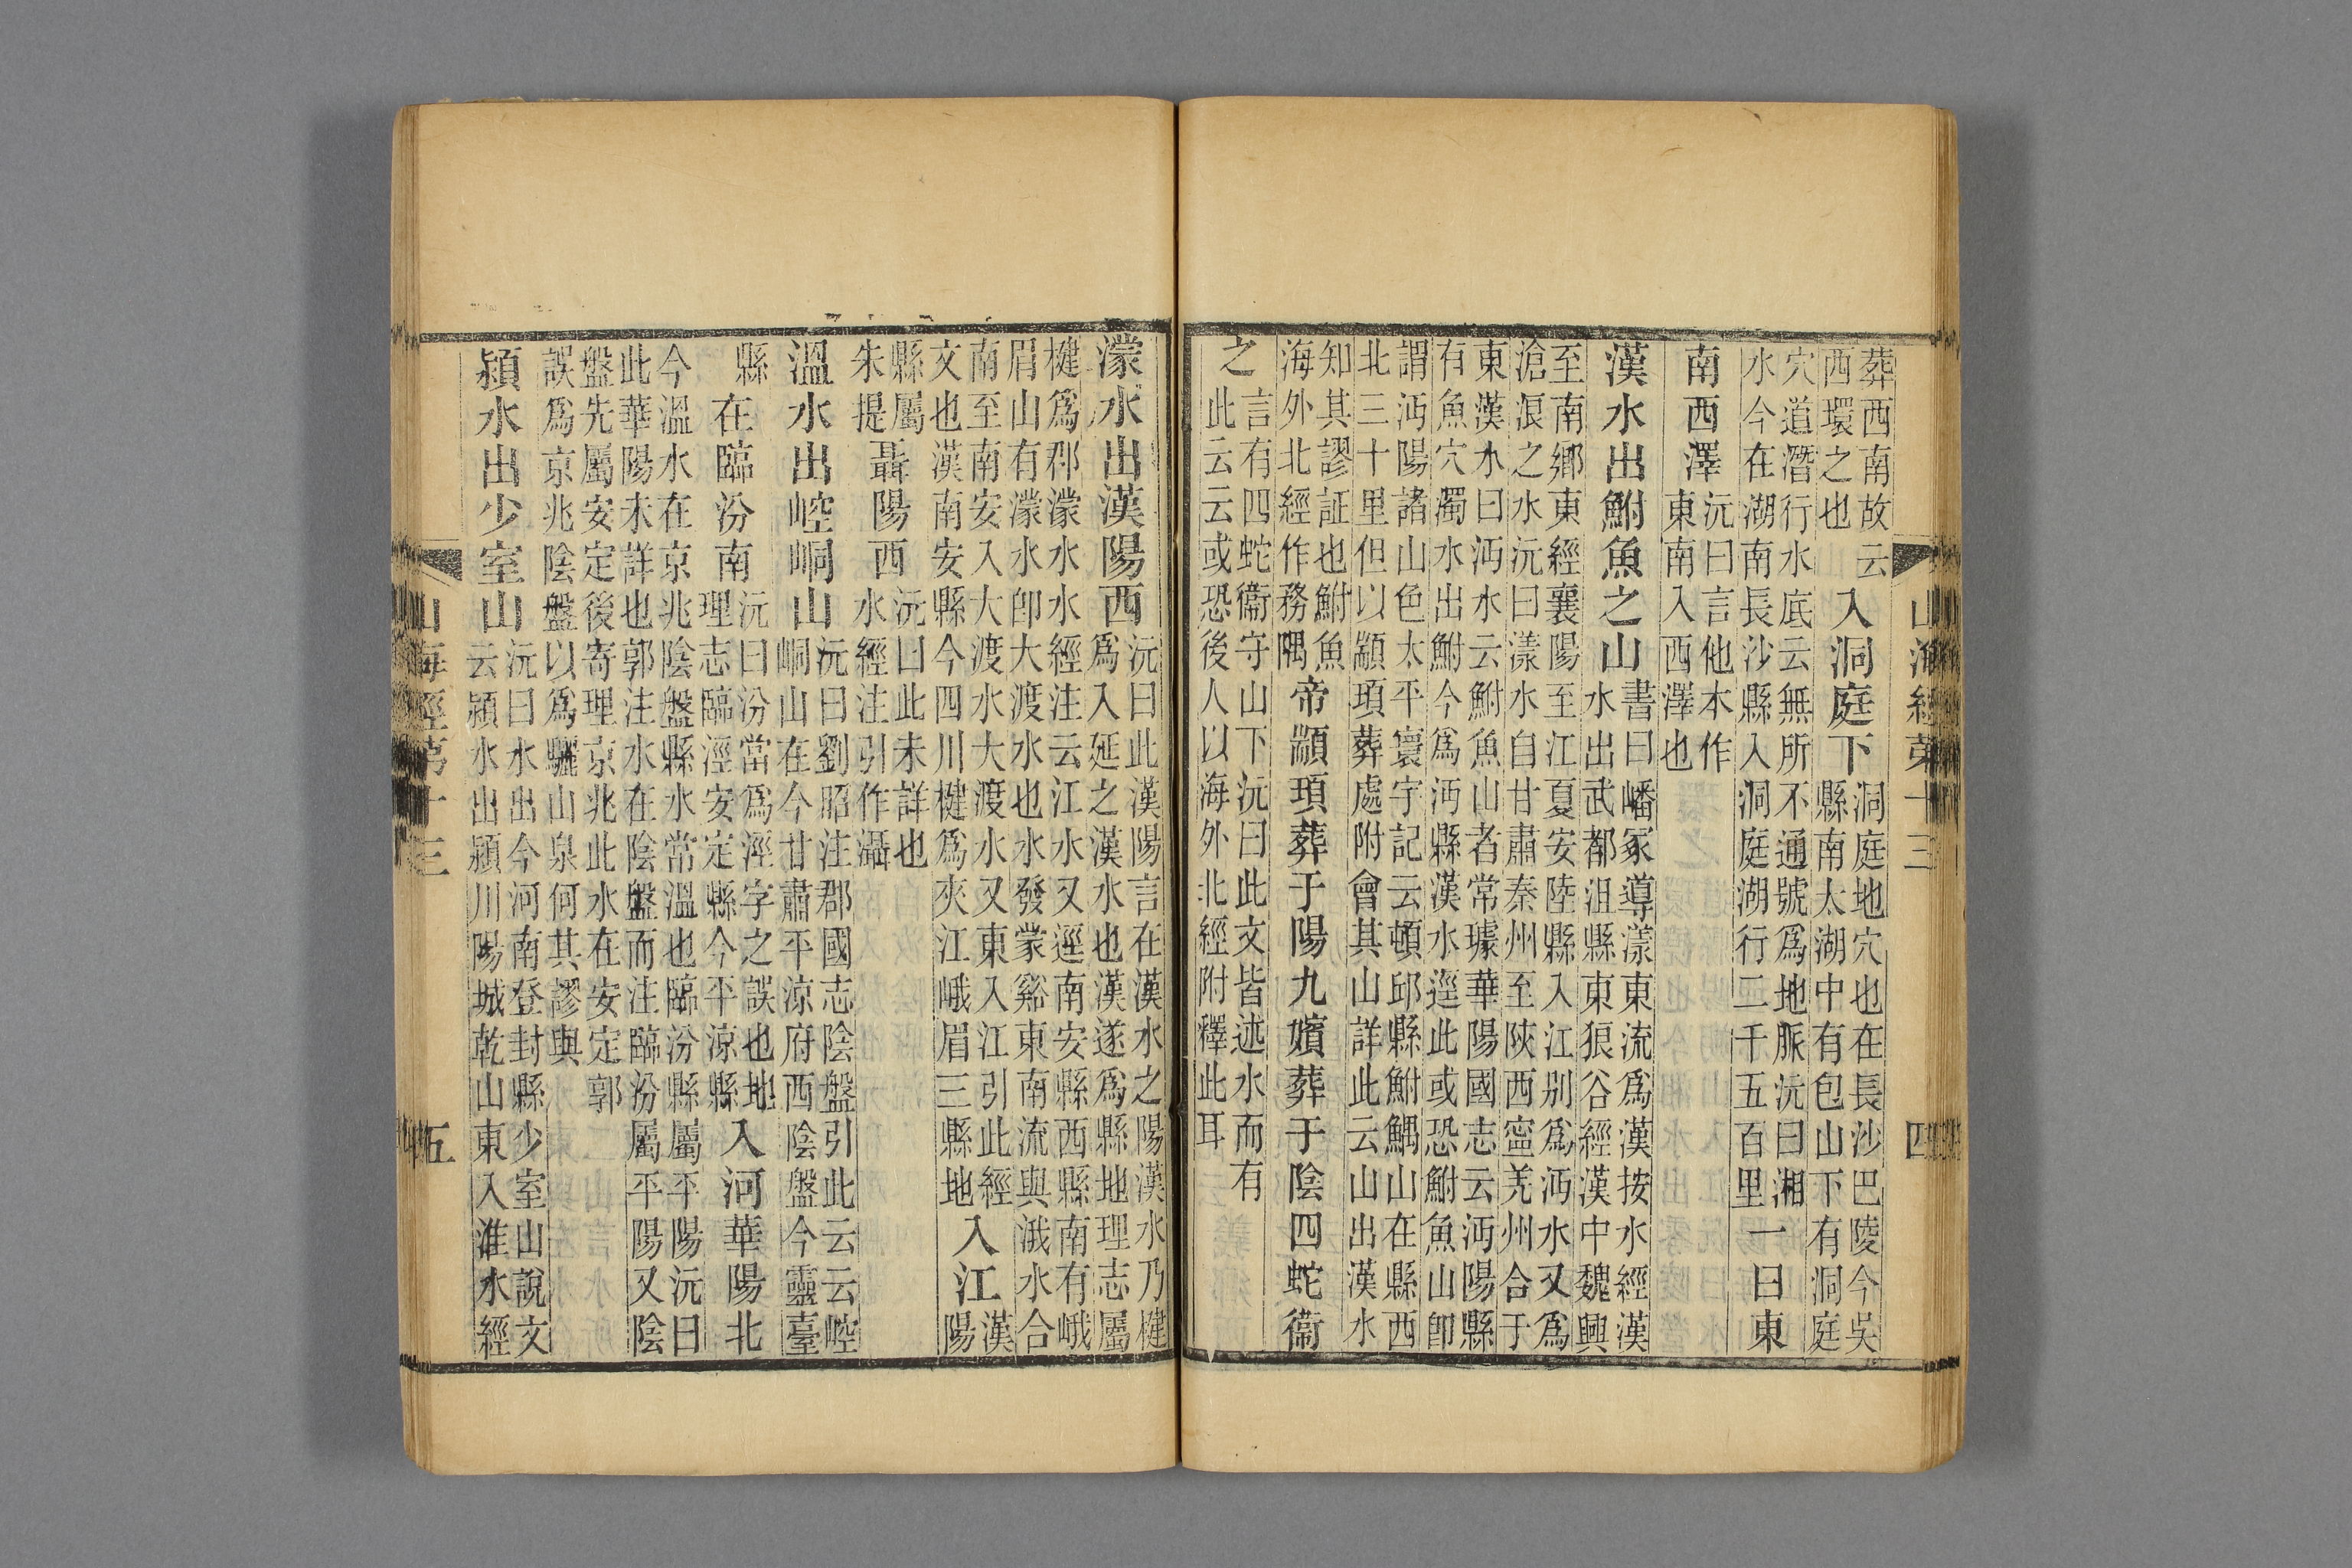 山海經第十三　四
葬西南故云
西環之也
入洞庭下
洞庭地穴也在長沙巴陵今吳
縣南太湖中有包山下有洞庭
穴道潛行水底云無所不通號爲地脈沅曰湘
水今在湖南長沙縣入洞庭湖行二千五百里
一曰東
南西澤
沅曰言他本作
東南入西澤也
漢水出鮒魚之山
書曰嶓冢導漾東流爲漢按水經漢
水出武都沮縣東狼谷經漢中魏興
至南鄉東經襄陽至江夏安陸縣入江别爲沔水又爲
滄浪之水沅曰漾水自甘肅秦州至陝西寧羌州合于
東漢水曰沔水云鮒魚山者常璩華陽國志云沔陽縣
有魚穴濁水出鮒今爲沔縣漢水逕此或恐鮒魚山卽
謂沔陽諸山色太平寰宇記云頓邱縣鮒鰅山在縣西
北三十里但以顓頊葬處附會其山詳此云山出漢水
知其謬証也鮒魚
海外北經作務隅
帝顓頊葬于陽九嬪葬于陰四蛇衞
之
言有四蛇衞守山下沅曰此文皆述水而有
此云云或恐後人以海外北經附釋此耳
濛水出漢陽西
沅曰此漢陽言在漢水之陽漢水乃楗
爲入延之漢水也漢遂爲縣地理志屬
楗爲郡濛水水經注云江水又逕南安縣西縣南有峨
眉山有濛水卽大渡水也水發蒙谿東南流與涐水合
南至南安入大渡水大渡水又東入江引此經
文也漢南安縣今四川楗爲夾江峨眉三縣地
入江
漢
陽
縣屬
朱提
聶陽西
沅曰此未詳也
水經注引作灄
溫水出崆峒山
沅曰劉昭注郡國志陰盤引此云云崆
峒山在今甘肅平涼府西陰盤今靈臺
縣
在臨汾南
沅曰汾當爲涇字之誤也地
理志臨涇安定縣今平涼縣
入河華陽北
今溫水在京兆陰盤縣水常溫也臨汾縣屬平陽沅曰
此華陽未詳也郭注水在陰盤而注臨汾屬平陽又陰
盤先屬安定後寄理京兆此水在安定郭
誤爲京兆陰盤以爲驪山泉何其謬與
潁水出少室山
沅曰水出今河南登封縣少室山說文
云潁水出潁川陽城乾山東入淮水經
山海經第十三　五